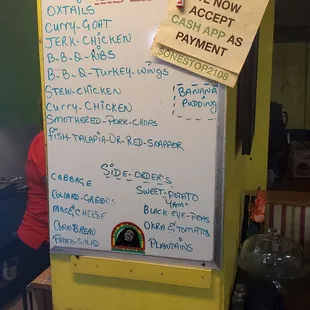 OXTAILS
CURRY-GOAT
JERK-CHICKEN
B-B-Q-RIBS
B-B-Q-TURKEY-WINGS
STEW-CHICKEN
CURRY-CHICKEN
SMOTHERED-PORK-CHOPS
FISH-TALAPIA-OR-RED-SNAPPER
NOW
ACCEPT
CASH APP AS
PAYMENT
SONESTOP2108
BANANA
PUDDING
SIDE-ORDER'S
CABBAGE
COLLARD-GREENS
MAC&CHEESE
CORN BREAD
POTATO-SALAD
SWEET-POTATO
YAM
BLACK EYE-PEAS
OKRA & TOMATOS
PLANTAINS